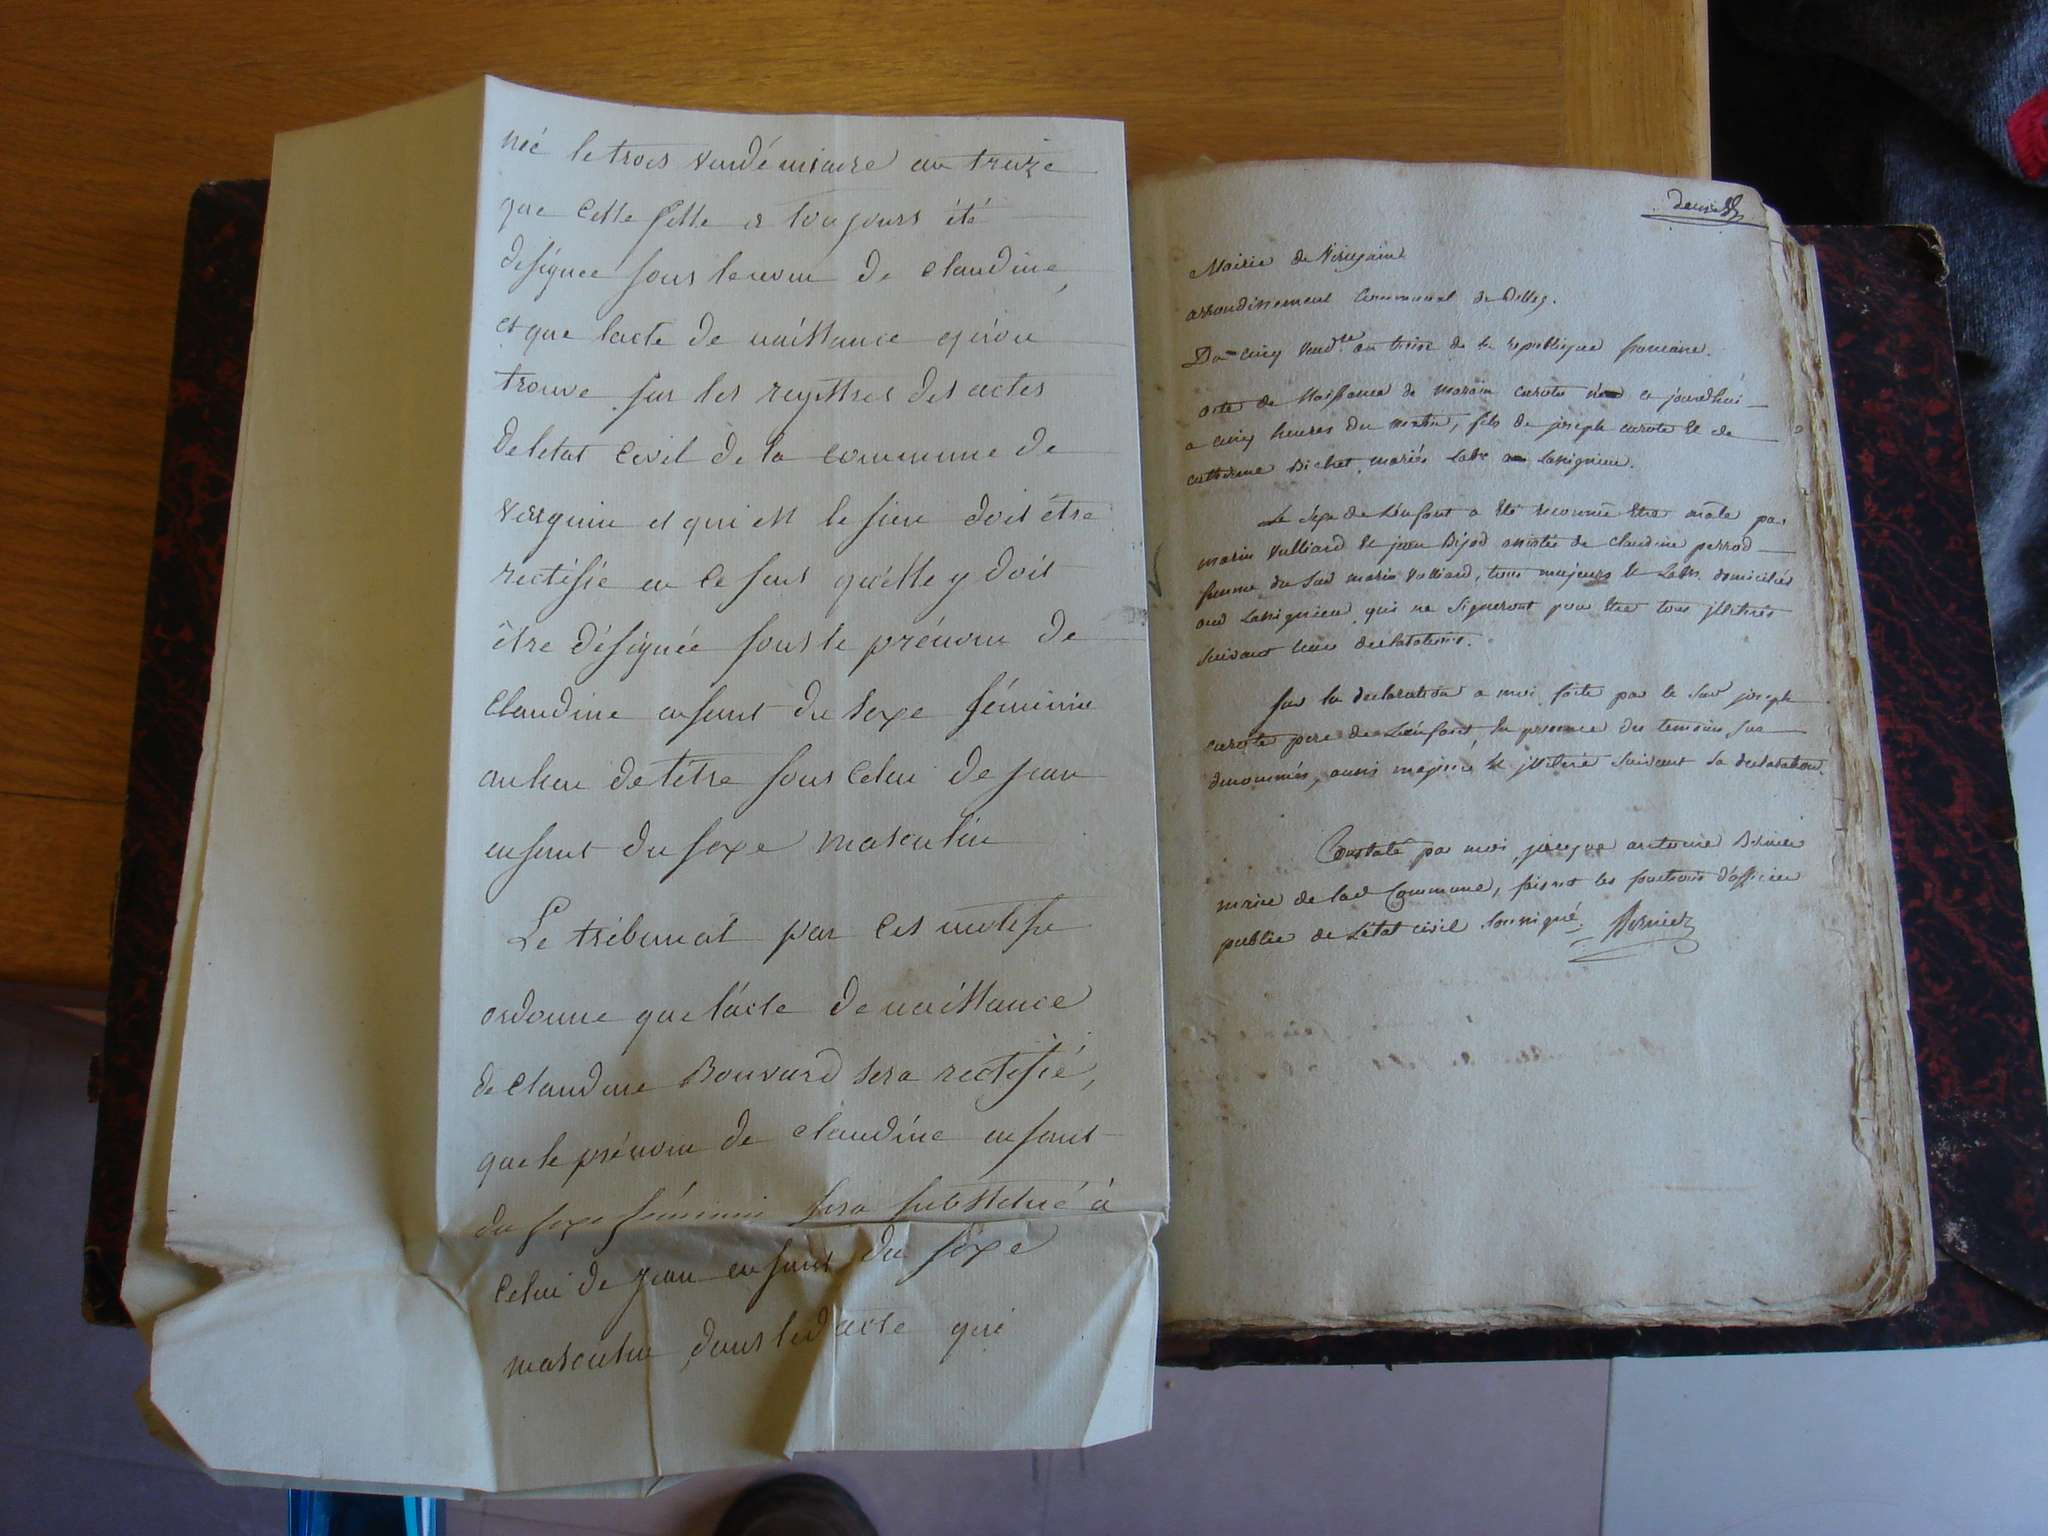 née le trois vendémiaire an treize
que cette fille a toujours été
désignée sous le nom de claudine,
et que lacte de naissance qu'on
trouve sur les regîtres des actes
de letat Civil de la commune de
virignin et qui est le sien doit être
rectifié en ce sens qu'elle y doit
être désignée sous le prénom de
Claudine enfant du sexe féminin
au lieu de l'être sous Celui de jean
enfant du sexe masculin
Le tribunal par Ces motifs
ordonne que l'acte de naissance
de Claudine Bouvard sera rectifié,
que le prénom de claudine enfant
du sexe féminin sera substitué à
Celui de jean enfant du sexe
masculin dans led acte qui
Mairie de Virignin
arrondissement Communal de Belley.
Du cinq Vend.re an treize de la republique francaise.
acte de Naissance de Marin né ce jourdhui
a cinq heures du matin, fils de joseph et de
catherine Bichet mariés
Le Sexe de L'enfant a été reconnu être male par
marin Vulliard et jean assistés de claudine perrod
femme du Sus marin Vulliard, tous majeurs et domiciliés
qui ne signeront pour être tous illitérés
suivant leurs declarations.
sur la declaration a moi faite par le Sus joseph
pere de L'enfant, En presence des temoins sus
denommés, aussi majeur et illiteré suivant sa declaration.
Constaté par moi, jacque antoine Bernier
maire de lad Commune, faisant les fonctions d'officier
public de L'état civil soussigné. Bernier